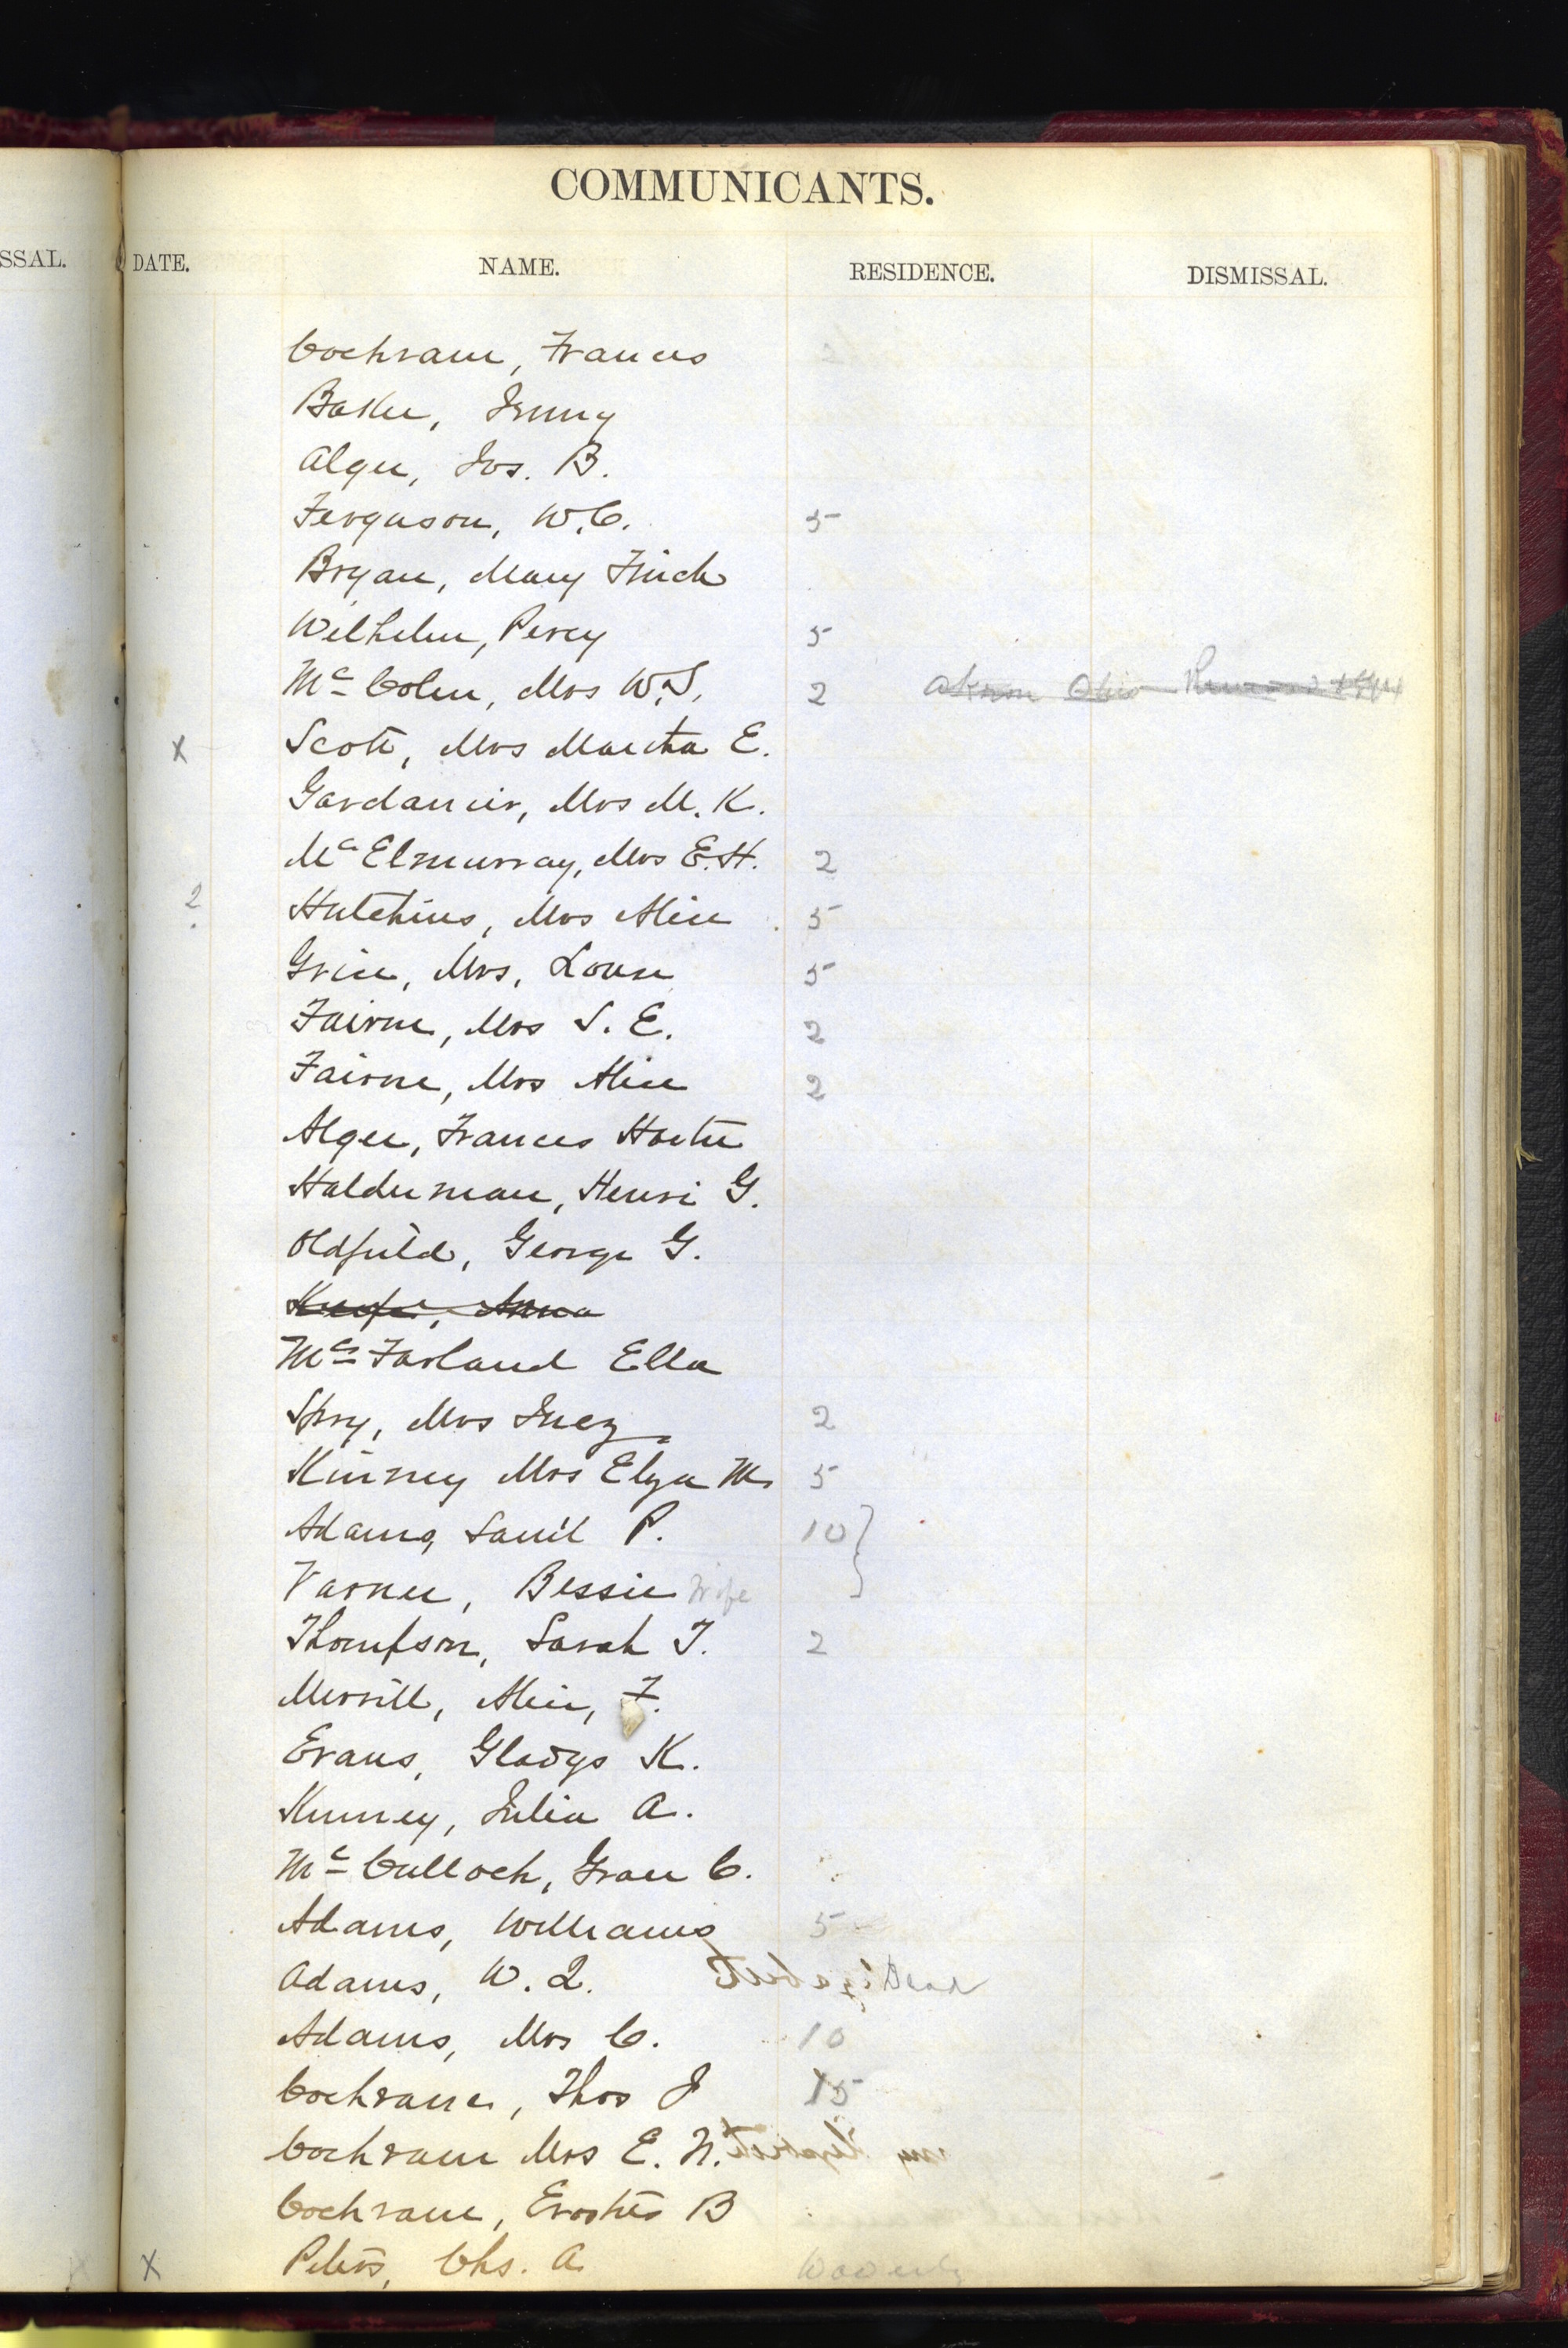 COMMUNICANTS.
SSAL. DATE. NAME. RESIDENCE. DISMISSAL.
Cochrane, Frances
Baker, Jenny
Alger, Jos. B.
Ferguson, W.C. 5
Bryan, Mary Finch
Wilhelm, Percy 5
Mc Colm, Mrs W.S. 2 Akron Ohio
X Scott, Mrs Martha E.
Gardanier, Mrs M. K.
Mc Elmurray, Mrs E.H. 2
? Hutchins, Mrs Alice 5
Grice, Mrs, Louse 5
Fairne, Mrs S. E. 2
Fairne, Mrs Alice 2
Alger, Frances Harte
Halderman, Henri G.
Oldfield, George G.
Anna
Mc Farland Ella
Spry, Mrs Inez 2
Kinney Mrs Elza M. 5
Adams, Saml P. 10 }
Varner, Bessie Wife
Thompson, Sarah T. 2
Merrill, Alice, F.
Evans, Gladys K.
Kinney, Julia A.
Mc Culloch, Grace C.
Adams, Williams 5
Adams, W. Q. Dead
Adams, Mrs C. 10
Cochrane, Thos J 15
Cochrane Mrs E. N.
Cochrane, Erastus B
X Peters, Chs. A. Waverly